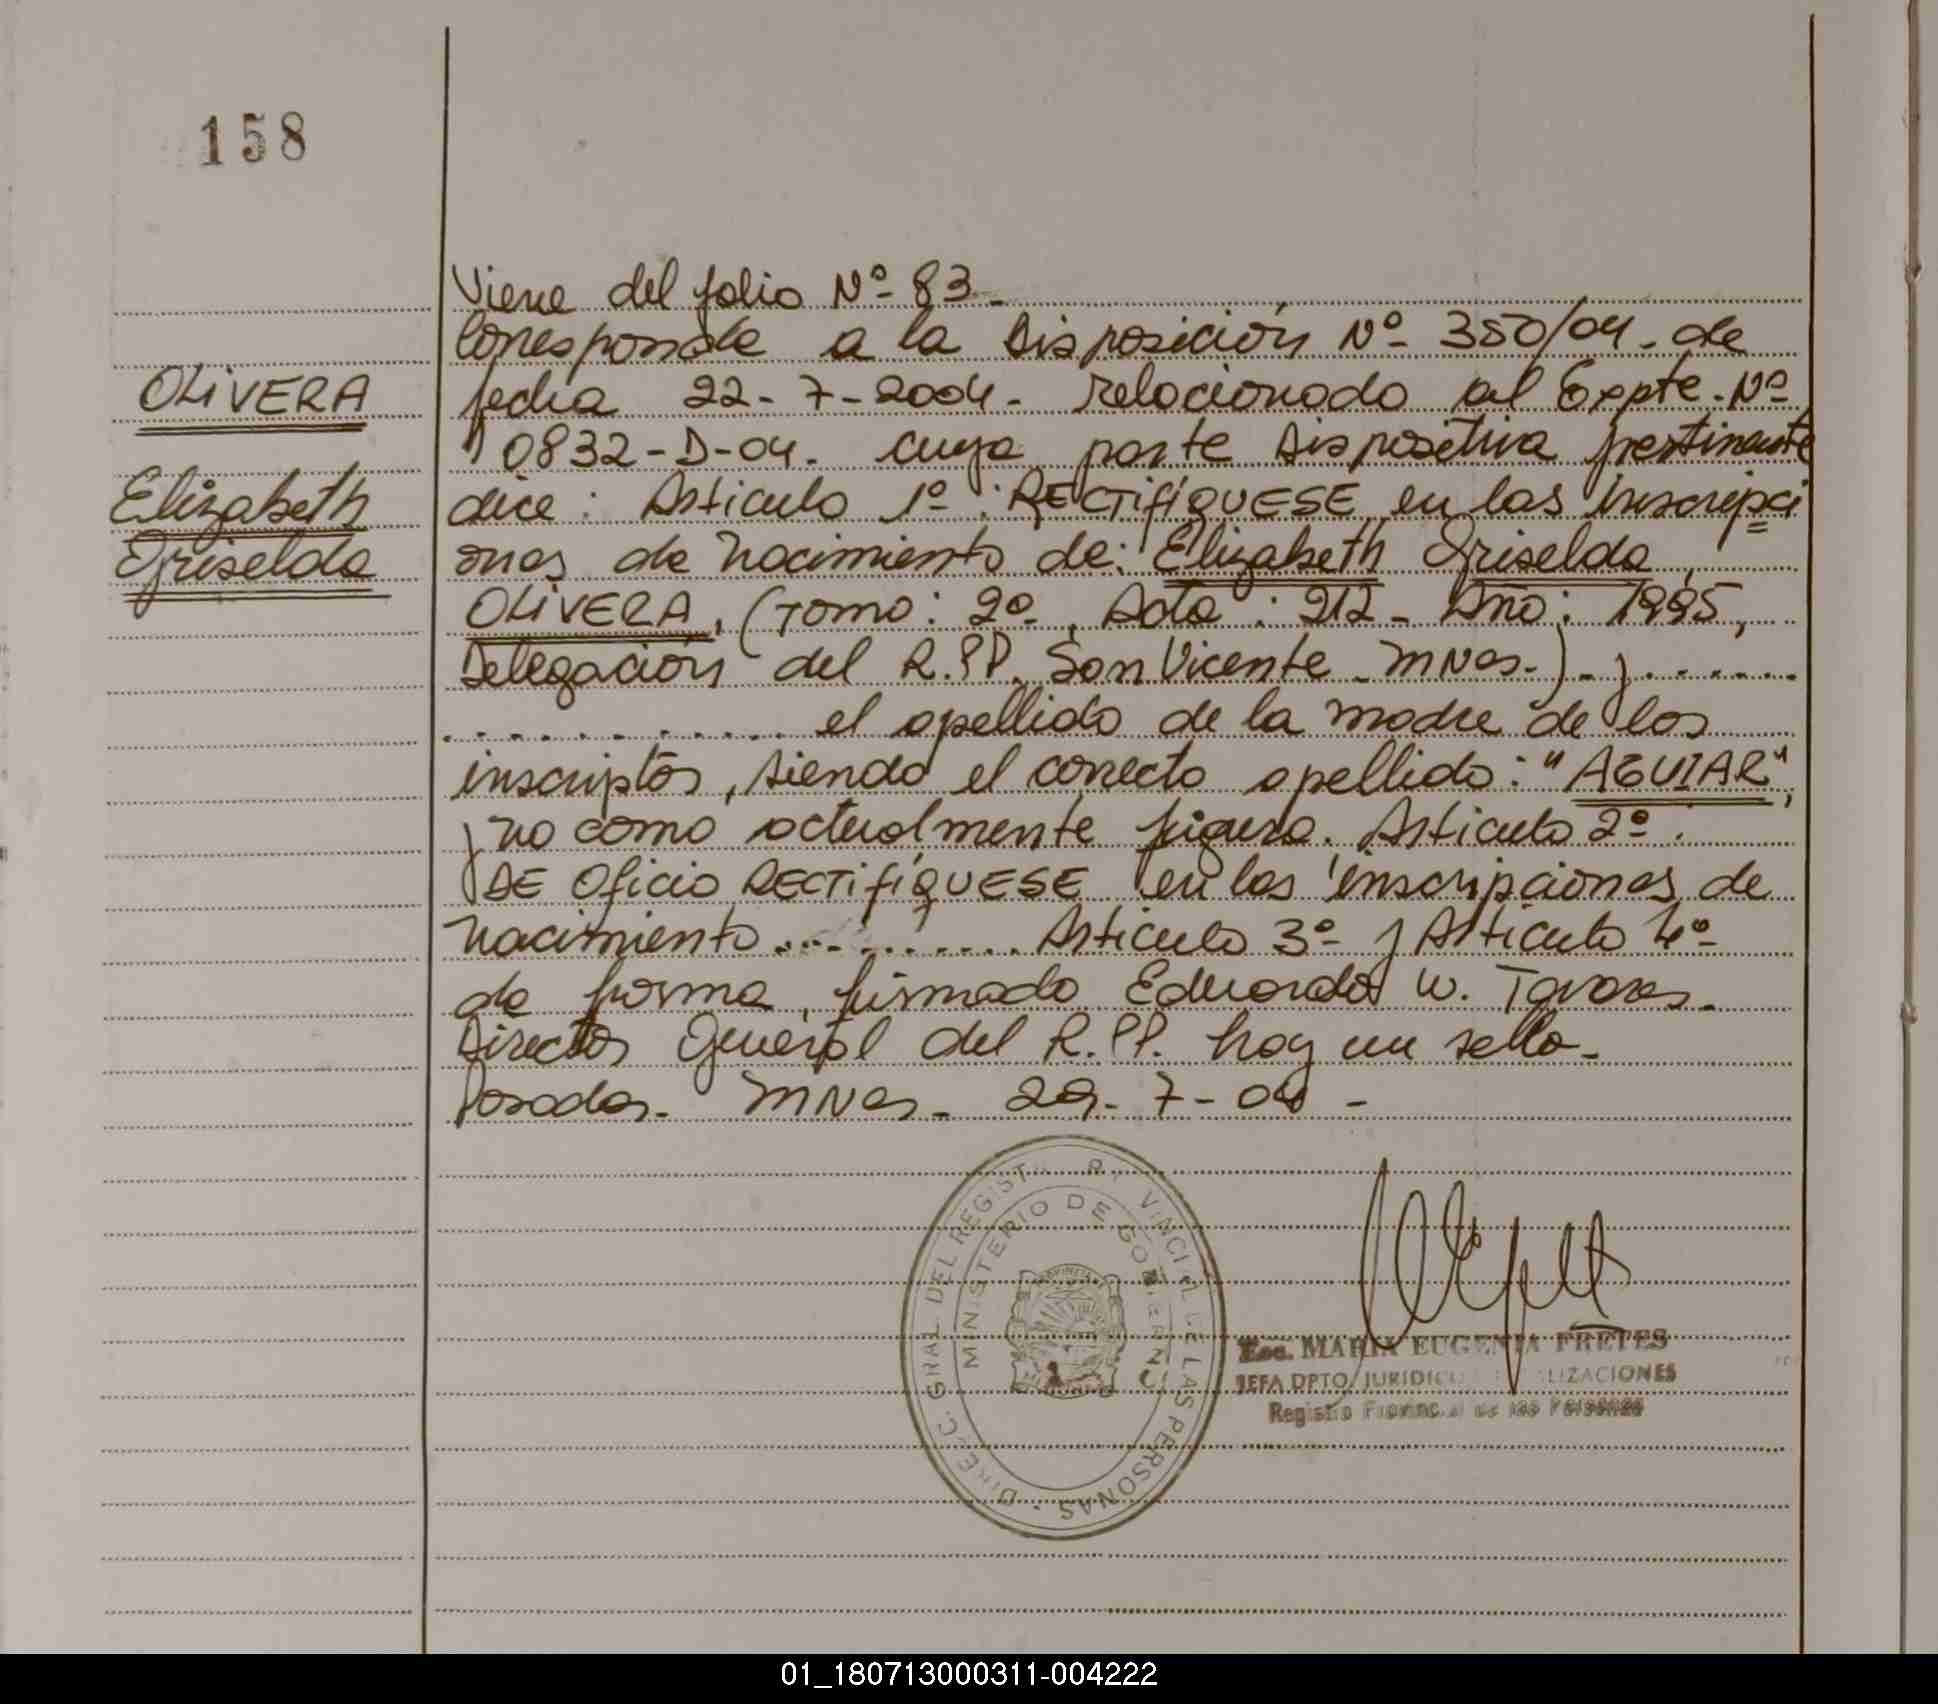 158
Viene del folio Nº 83.
Corresponde a la Disposición Nº 350/04. de
OLIVERA
fecha 22-7-2004. relacionado al Expte. Nº
10832-D-04. cuya parte Dispositiva pertinente
Elizabeth
dice: Articulo 1º: RECTIFÍQUESE en las inscripci
Griselda
ones de nacimiento de: Elizabeth Griselda
OLIVERA, (Tomo: 2º, Acta: 212 - Año: 1995,
Delegación del R.PP. San Vicente - MNes.) - y.......
............. el apellido de la madre de los
inscriptos, siendo el correcto apellido: "AGUIAR",
y no como actualmente figura. Articulo 2º.
DE Oficio RECTIFÍQUESE en las inscripciones de
nacimiento........... Articulo 3º y Articulo 4º
de forma, firmado Eduardo W. Tavares.
Director General del R.PP. hay un sello.
Posadas. MNes. 29-7-04 -
DIREC. GRAL. DEL REGIST PROVINCIAL DE LAS PERSONAS
MINISTERIO DE GOBIERNO
Esc. MARIA EUGENIA FRETES
JEFA DPTO. JURIDICO LIZACIONES
Registro Provincial de las Personas
01_180713000311-004222